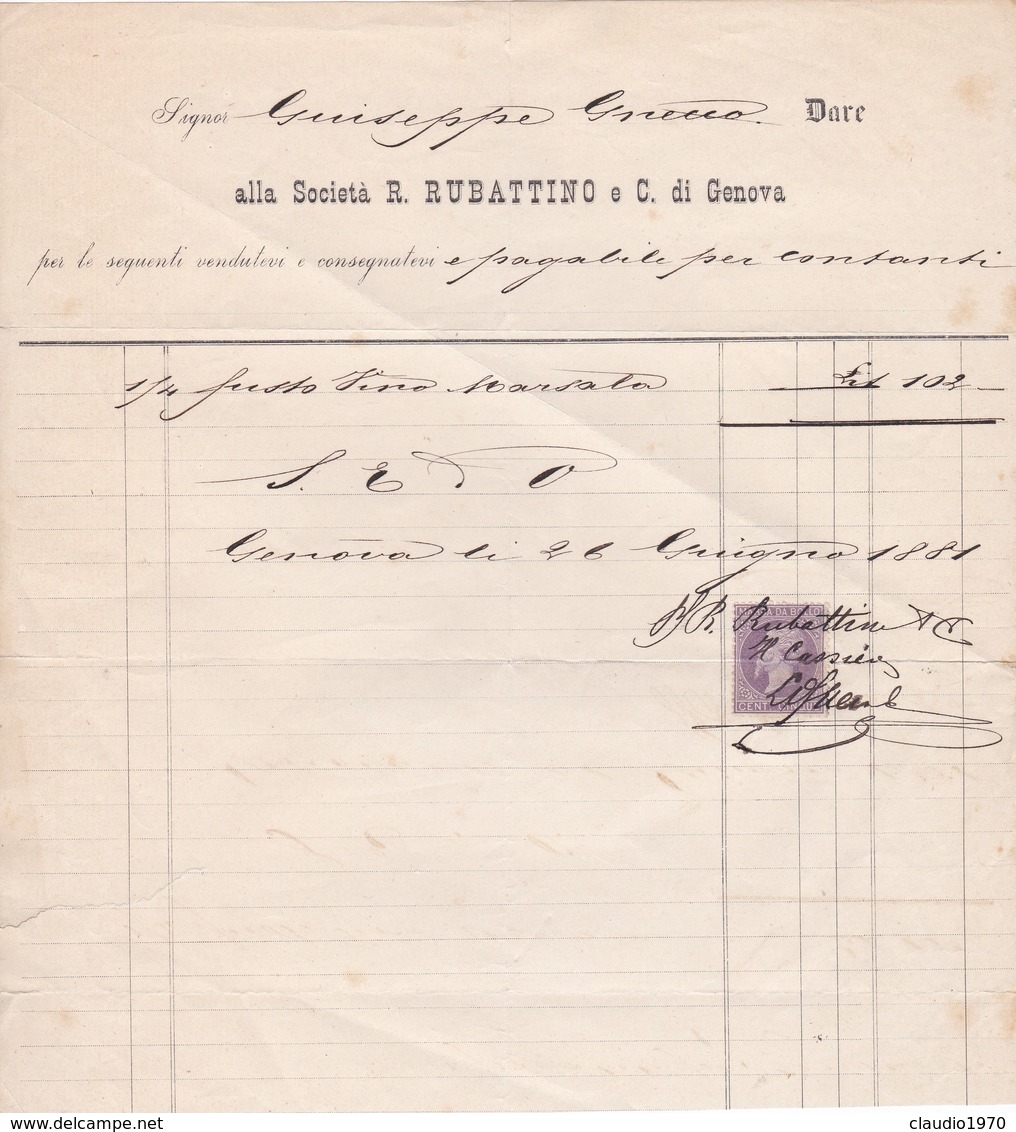 Signor Guiseppe Gnecco. Dare
alla Società R. RUBATTINO e C. di Genova
per le seguenti vendutevi e consegnatevi e pagabile per contanti
1/4 fusto Vino Marsala Lit 102
S. E. & O
Genova li 26 Giugno 1881
MARCA DA BOLLO
R. Rubattino & C
Il Cassiere
CENT. CINQUE
delcampe.net
claudio1970